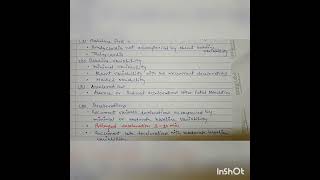 (1) Baseline FHR
• Bradycardia not accompanied by absent baseline variability
• Tachycardia
(2) Baseline variability
• Minimal variability
• Absent variability with no recurrent decelerations
• Marked variability
(3) Accelerations
• Absence of induced accelerations after fetal stimulation
(4) Decelerations
• Recurrent variable decelerations accompanied by minimal or moderate baseline variability
• Prolonged deceleration 2-10 min
• Recurrent late deceleration with moderate baseline variability
InShOt